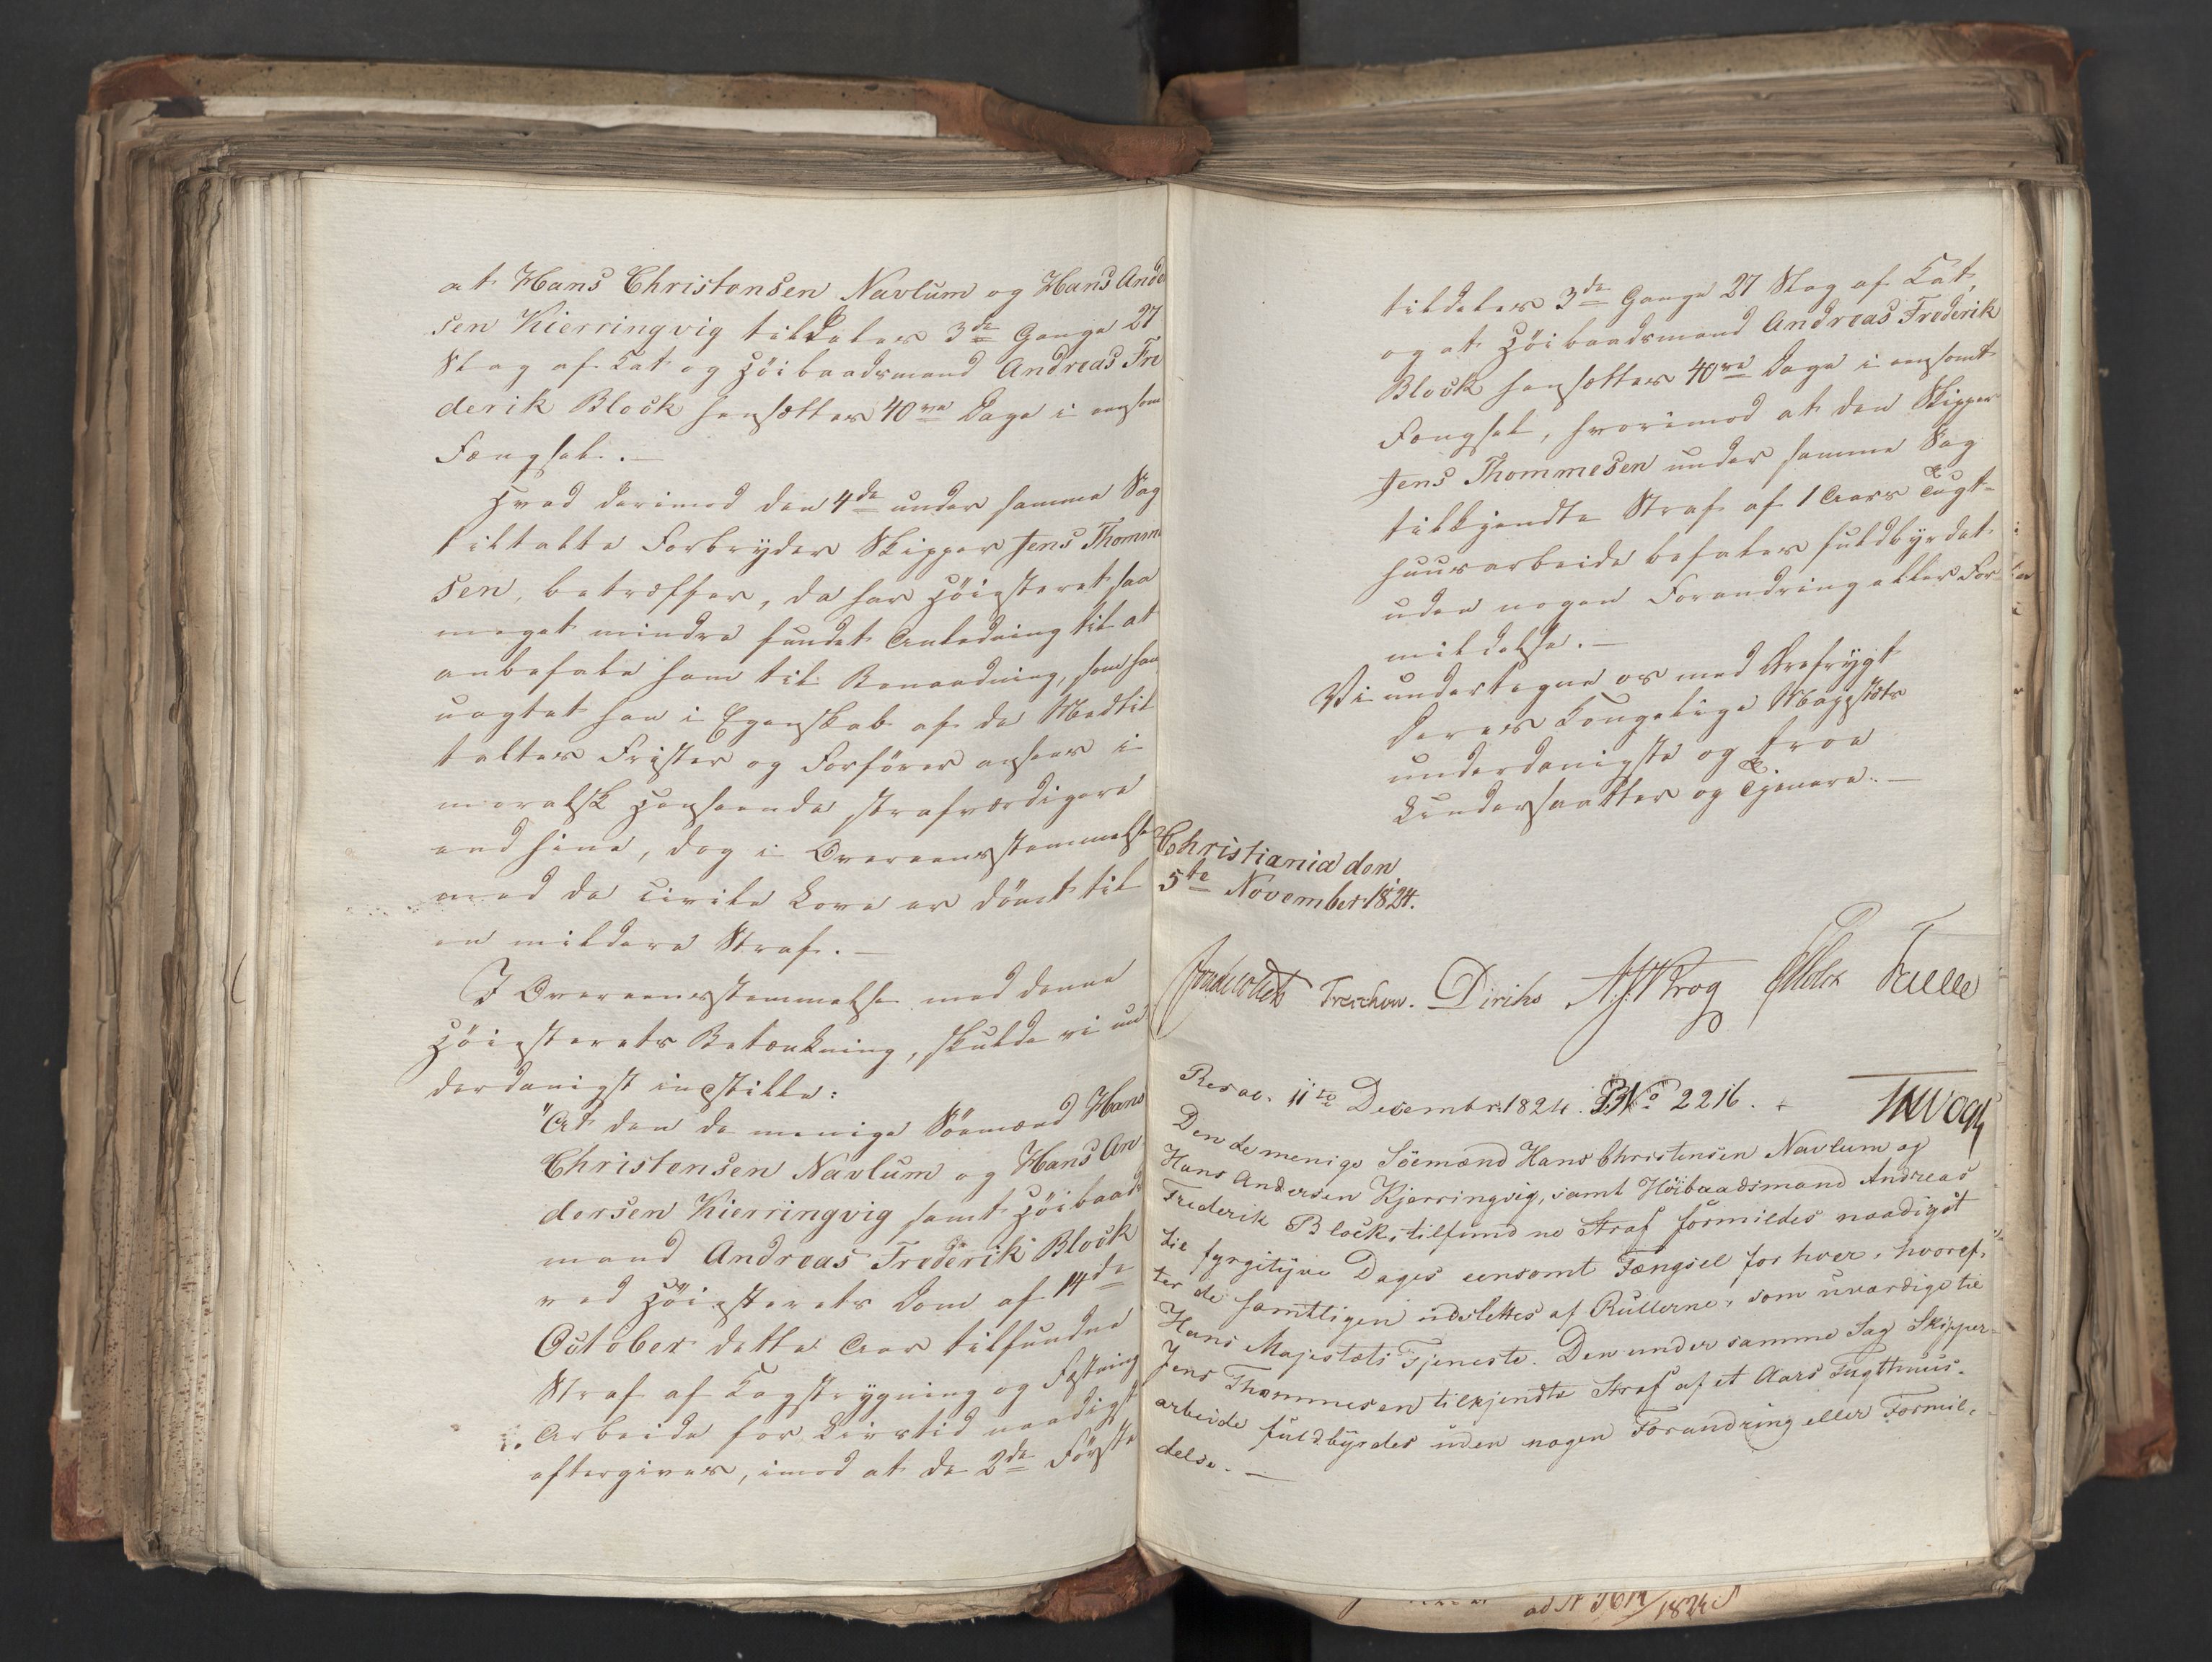 at Hans Christensen Navlum og Hans Ande
sen Kierringvig tildeles 3de Gange 27
Slag af Kat og Höibaadsmand Andreas Fre
derik Block hensættes 40ve Dage i eensom
Fængsel. —
Hvad derimod den 4de under samme Sag
tiltalte Forbryder Skipper Jens Thomme
sen, betræffer, da har Höiesteret saa
meget mindre fundet Anledning til at
anbefale ham til Benaadning, som han
uagtet han i Egenskab af de Medtil
taltes Frister og Forförer ansees i
moralsk Henseende strafværdigere
end hine, dog i Overeensstemmelse
med de civile Love er dömt til
en mildere Straf. —
I Overeensstemmelse med denne
Höiesterets Betænkning, skulde vi un
derdanigst indstille:
"At den de menige Söemænd Hans
Christensen Navlum og Hans An
dersen Kierringvig samt Höibaads
mand Andreas Frederik Block
ved Höiesterets Dom af 14de
October dette Aar tilfundne
Straf af Kagstrygning og Fæstning
Arbeide for Livstid naadigst
eftergives, imod at de 2de Förste
tildeles 3de Gange 27 Slag af Kat,
og at Höibaadsmand Andreas Frederik
Block hensættes 40ve Dage i eensomt
Fængsel, hvorimod at den Skipper
Jens Thommesen under samme Sag
tilkjendte Straf af 1 Aars Tugt-
huusarbeide befales fuldbyrdet
uden nogen Forandring eller For-
mildelse. —
Vi undertegne os med Ærefrygt
Deres Kongelige Majestæts
underdanigste og troe
Undersaatter og Tjenere. —
Christiania den
5te November 1824.
Treschow. Diriks Krog
Resol. 11te Decembr 1824. P. No 2216. JHVogt
Den de menige Söemænd Hans Christensen Navlum og
Hans Andersen Kjerringvig, samt Höibaadsmand Andreas
Frederik Block, tilfundne Straf formildes naadigst
til fyrgityve Dages eensomt Fængsel for hver, hvoref-
ter de samtligen udslettes af Rullerne, som uværdige til
Hans Majestæts Tjeneste. Den under samme Sag Skipper
Jens Thommesen tilkjendte Straf af et Aars Tugthuus-
arbeide fuldbyrdes uden nogen Forandring eller Formil-
delse. —